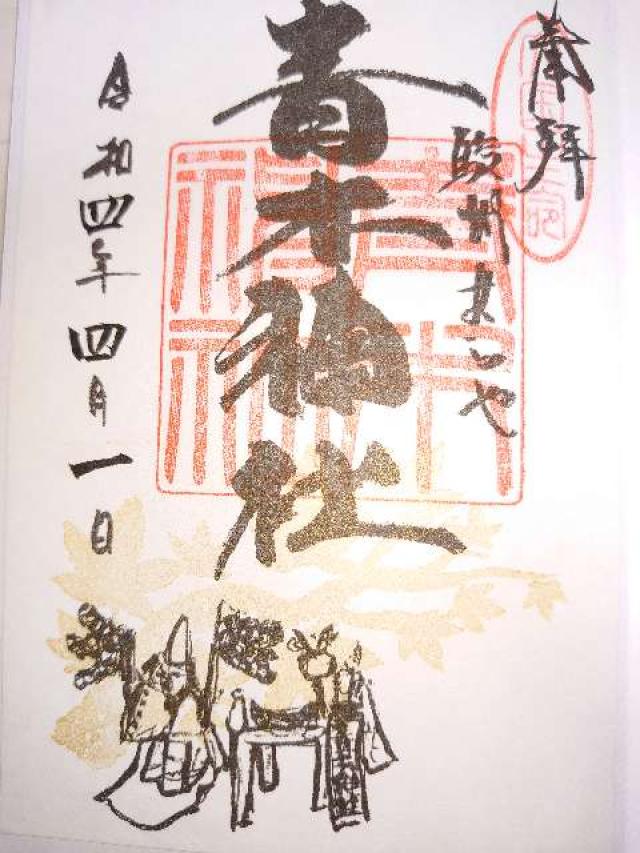 奉拝
駿州
青木神社
令和四年四月一日
青木神社